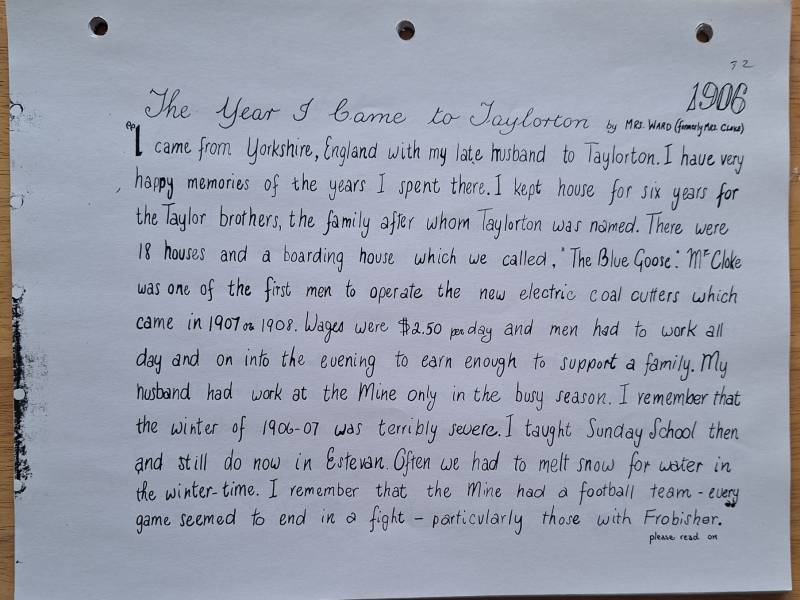 72
1906
The Year I Came to Taylorton by MRS. WARD (formerly MRS. CLOKE)
I came from Yorkshire, England with my late husband to Taylorton. I have very
happy memories of the years I spent there. I kept house for six years for
the Taylor brothers, the family after whom Taylorton was named. There were
18 houses and a boarding house which we called, "The Blue Goose". Mr Cloke
was one of the first men to operate the new electric coal cutters which
came in 1907 or 1908. Wages were $2.50 per day and men had to work all
day and on into the evening to earn enough to support a family. My
husband had work at the Mine only in the busy season. I remember that
the winter of 1906-07 was terribly severe. I taught Sunday School then
and still do now in Estevan. Often we had to melt snow for water in
the winter-time. I remember that the Mine had a football team - every
game seemed to end in a fight - particularly those with Frobisher.
please read on